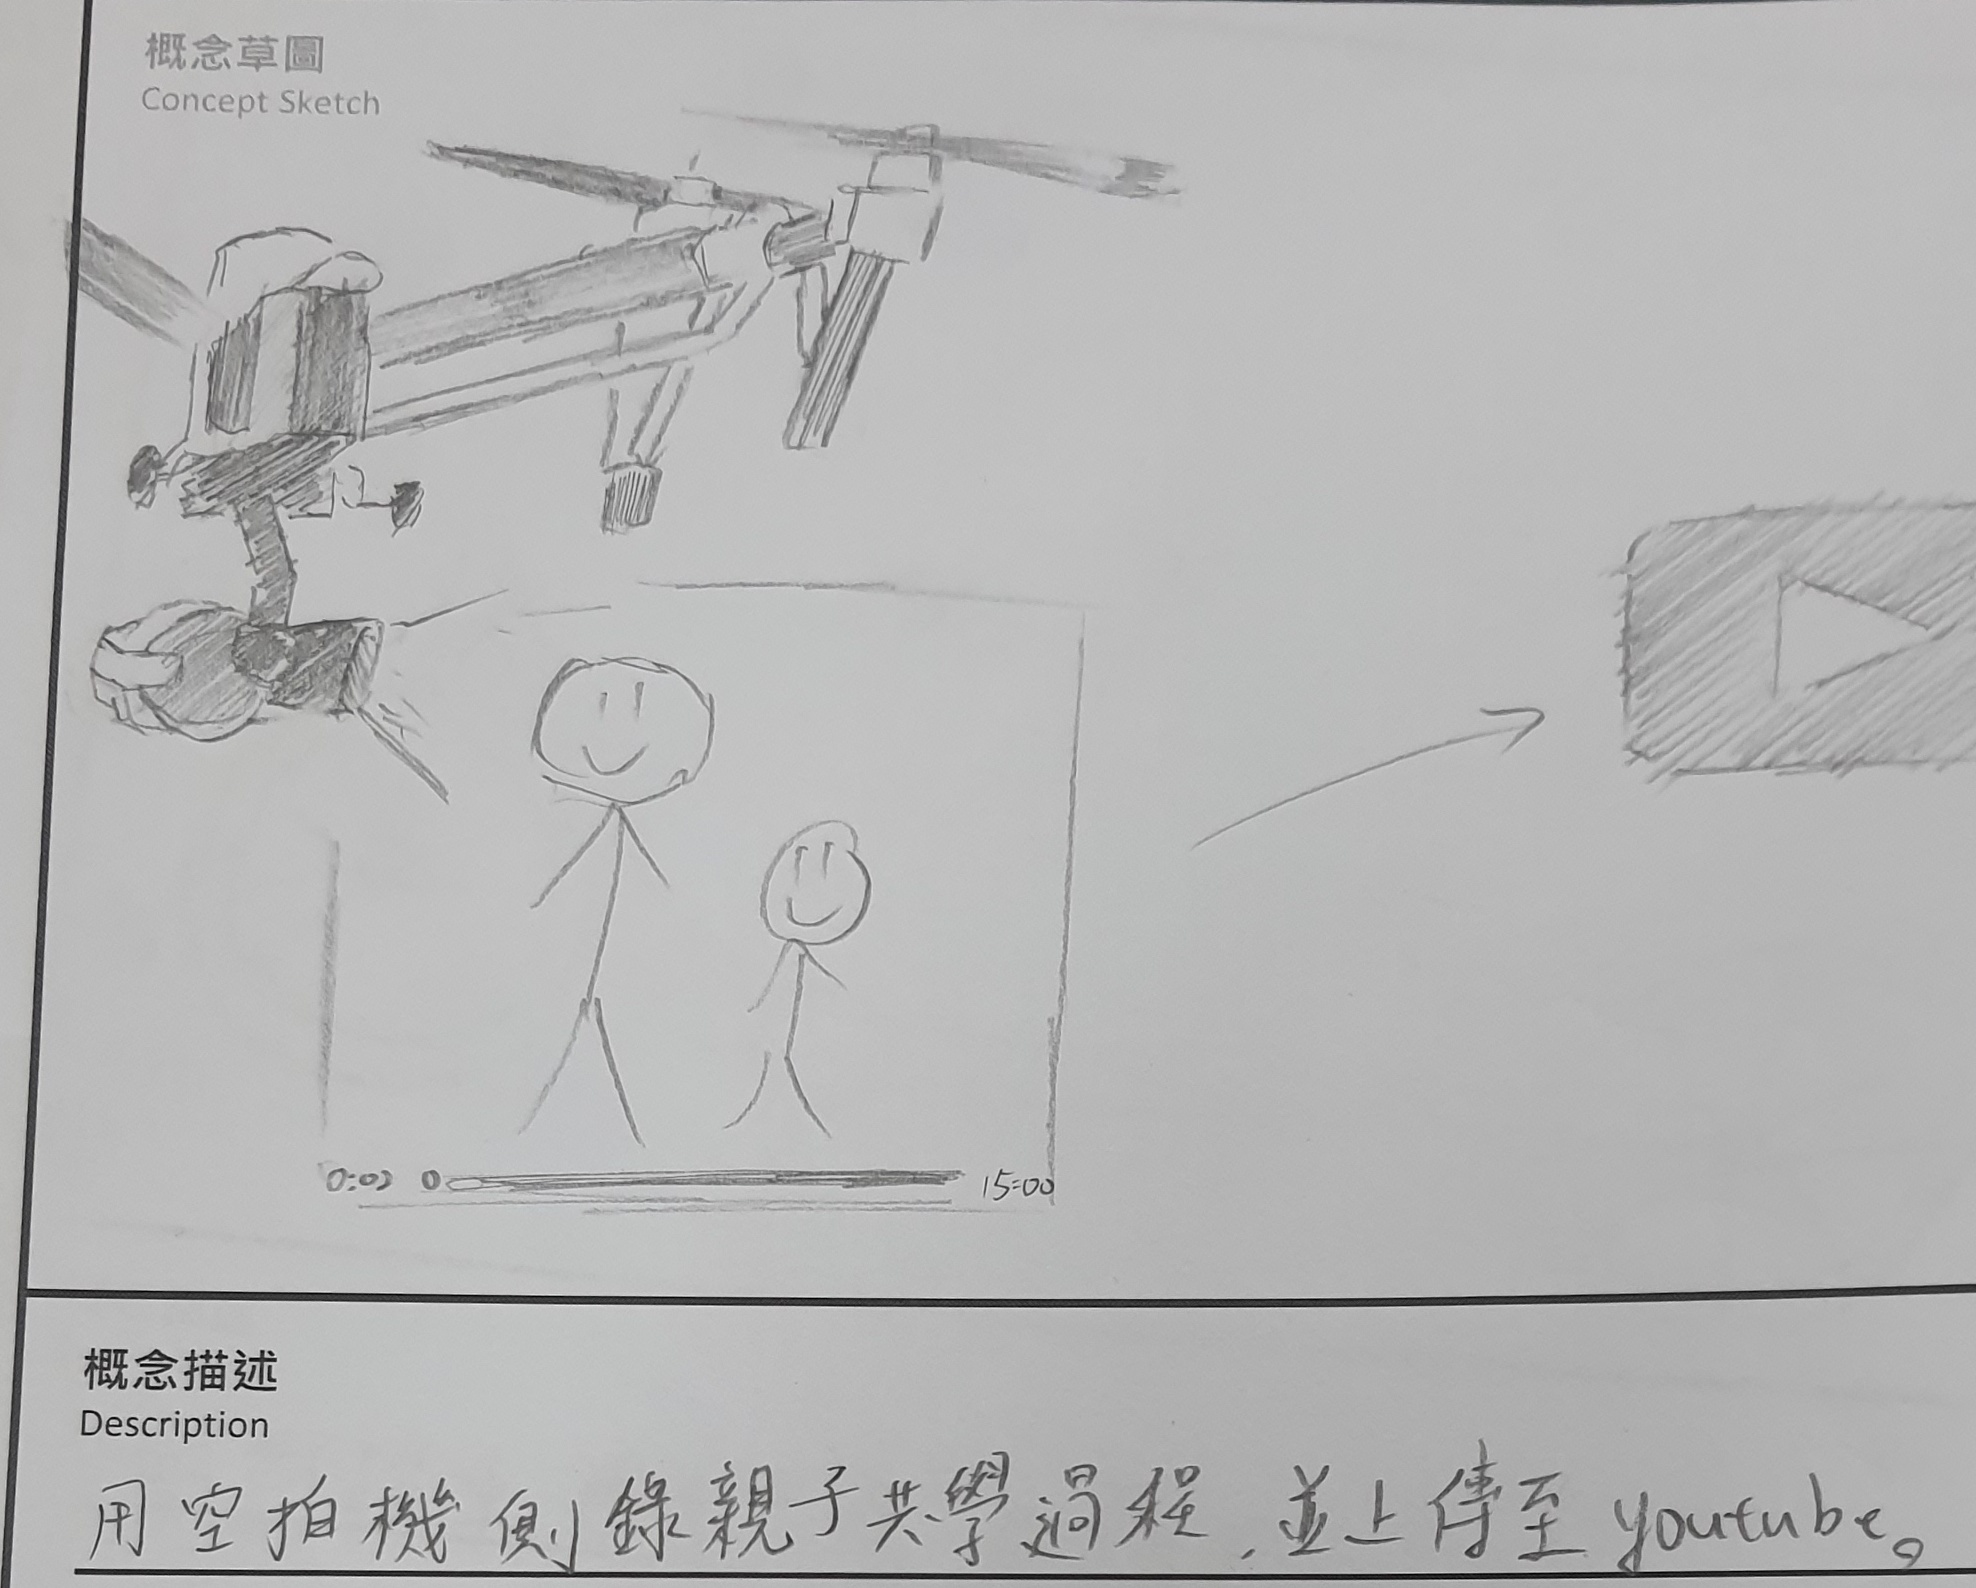 概念草圖
Concept Sketch
0:00 15:00
概念描述
Description
用空拍機側錄親子共學過程,並上傳至youtube。